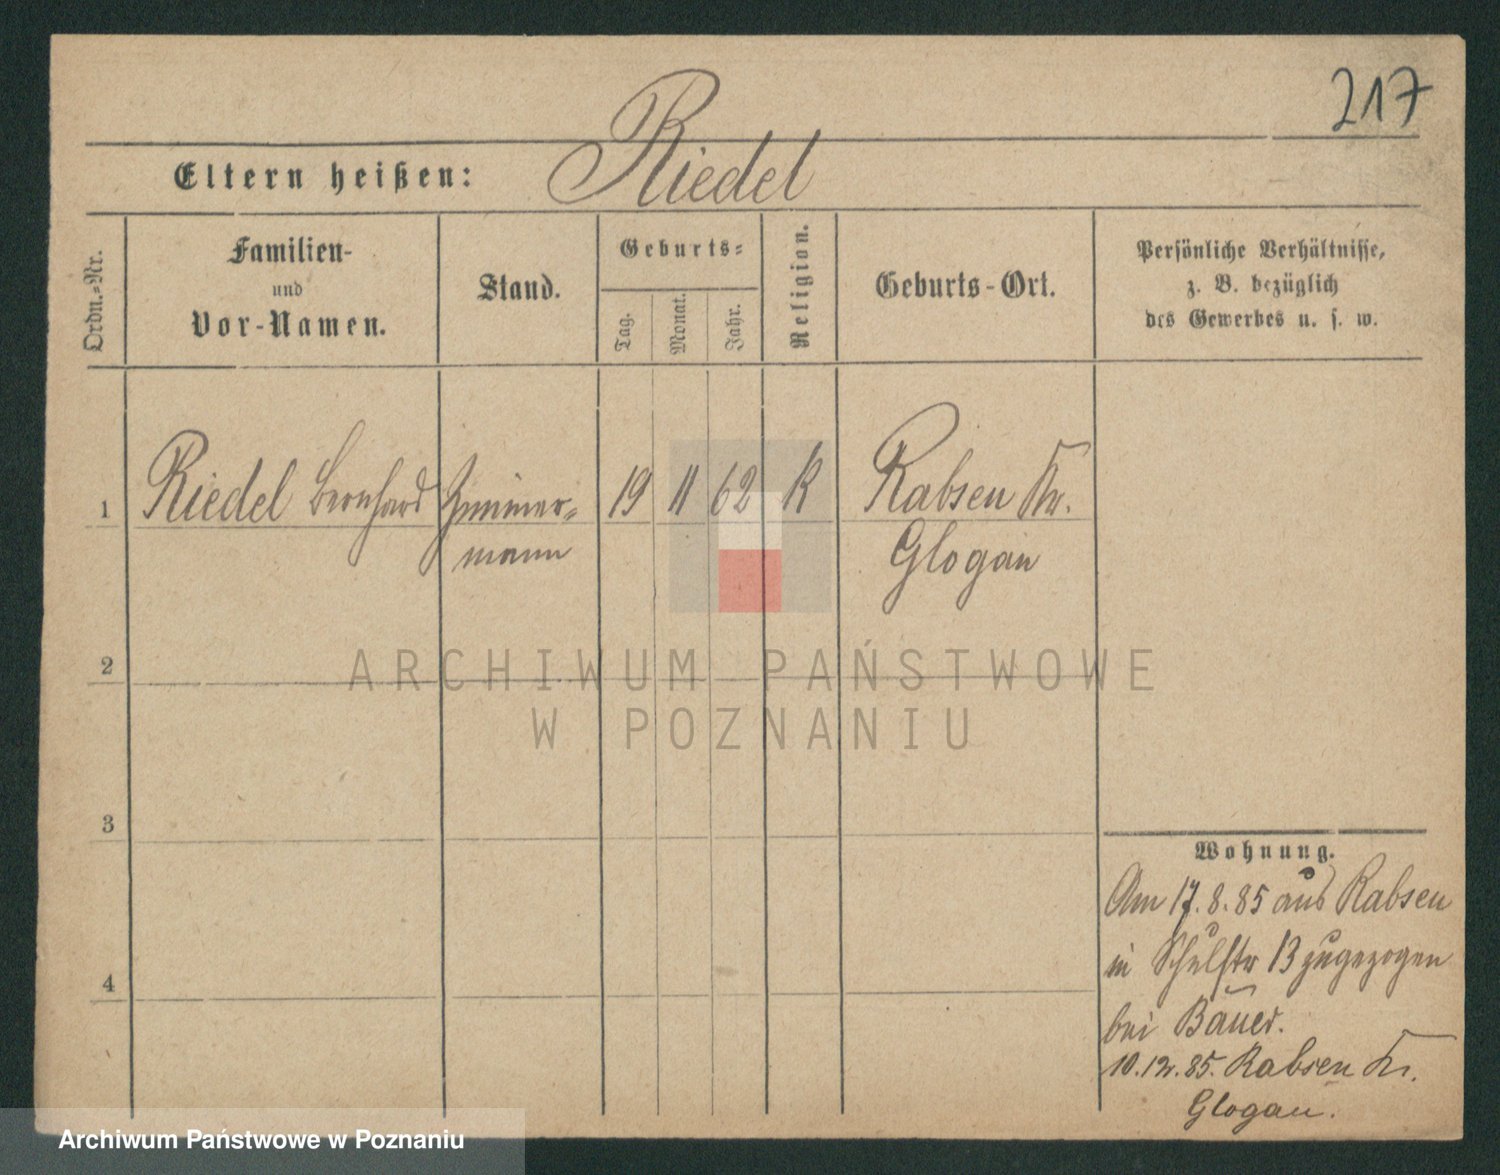 217
Riedel
Eltern heißen:
Ordn.-Nr.
Familien-
und
Vor-Namen.
Stand.
Geburts-
Tag.
Monat.
Jahr.
Religion.
Geburts-Ort.
Persönliche Verhältnisse,
z. B. bezüglich
des Gewerbes u. s. w.
1 Riedel Bernhard Zimmer- 19 11 62 K Rabsen Kr.
mann Glogau
2
3
4
ARCHIWUM PAŃSTWOWE
W POZNANIU
Wohnung.
Am 17.8.85 aus Rabsen
in Schulstr 13 zugezogen
bei Bauer.
10.12.85. Rabsen Kr.
Glogau.
Archiwum Państwowe w Poznaniu